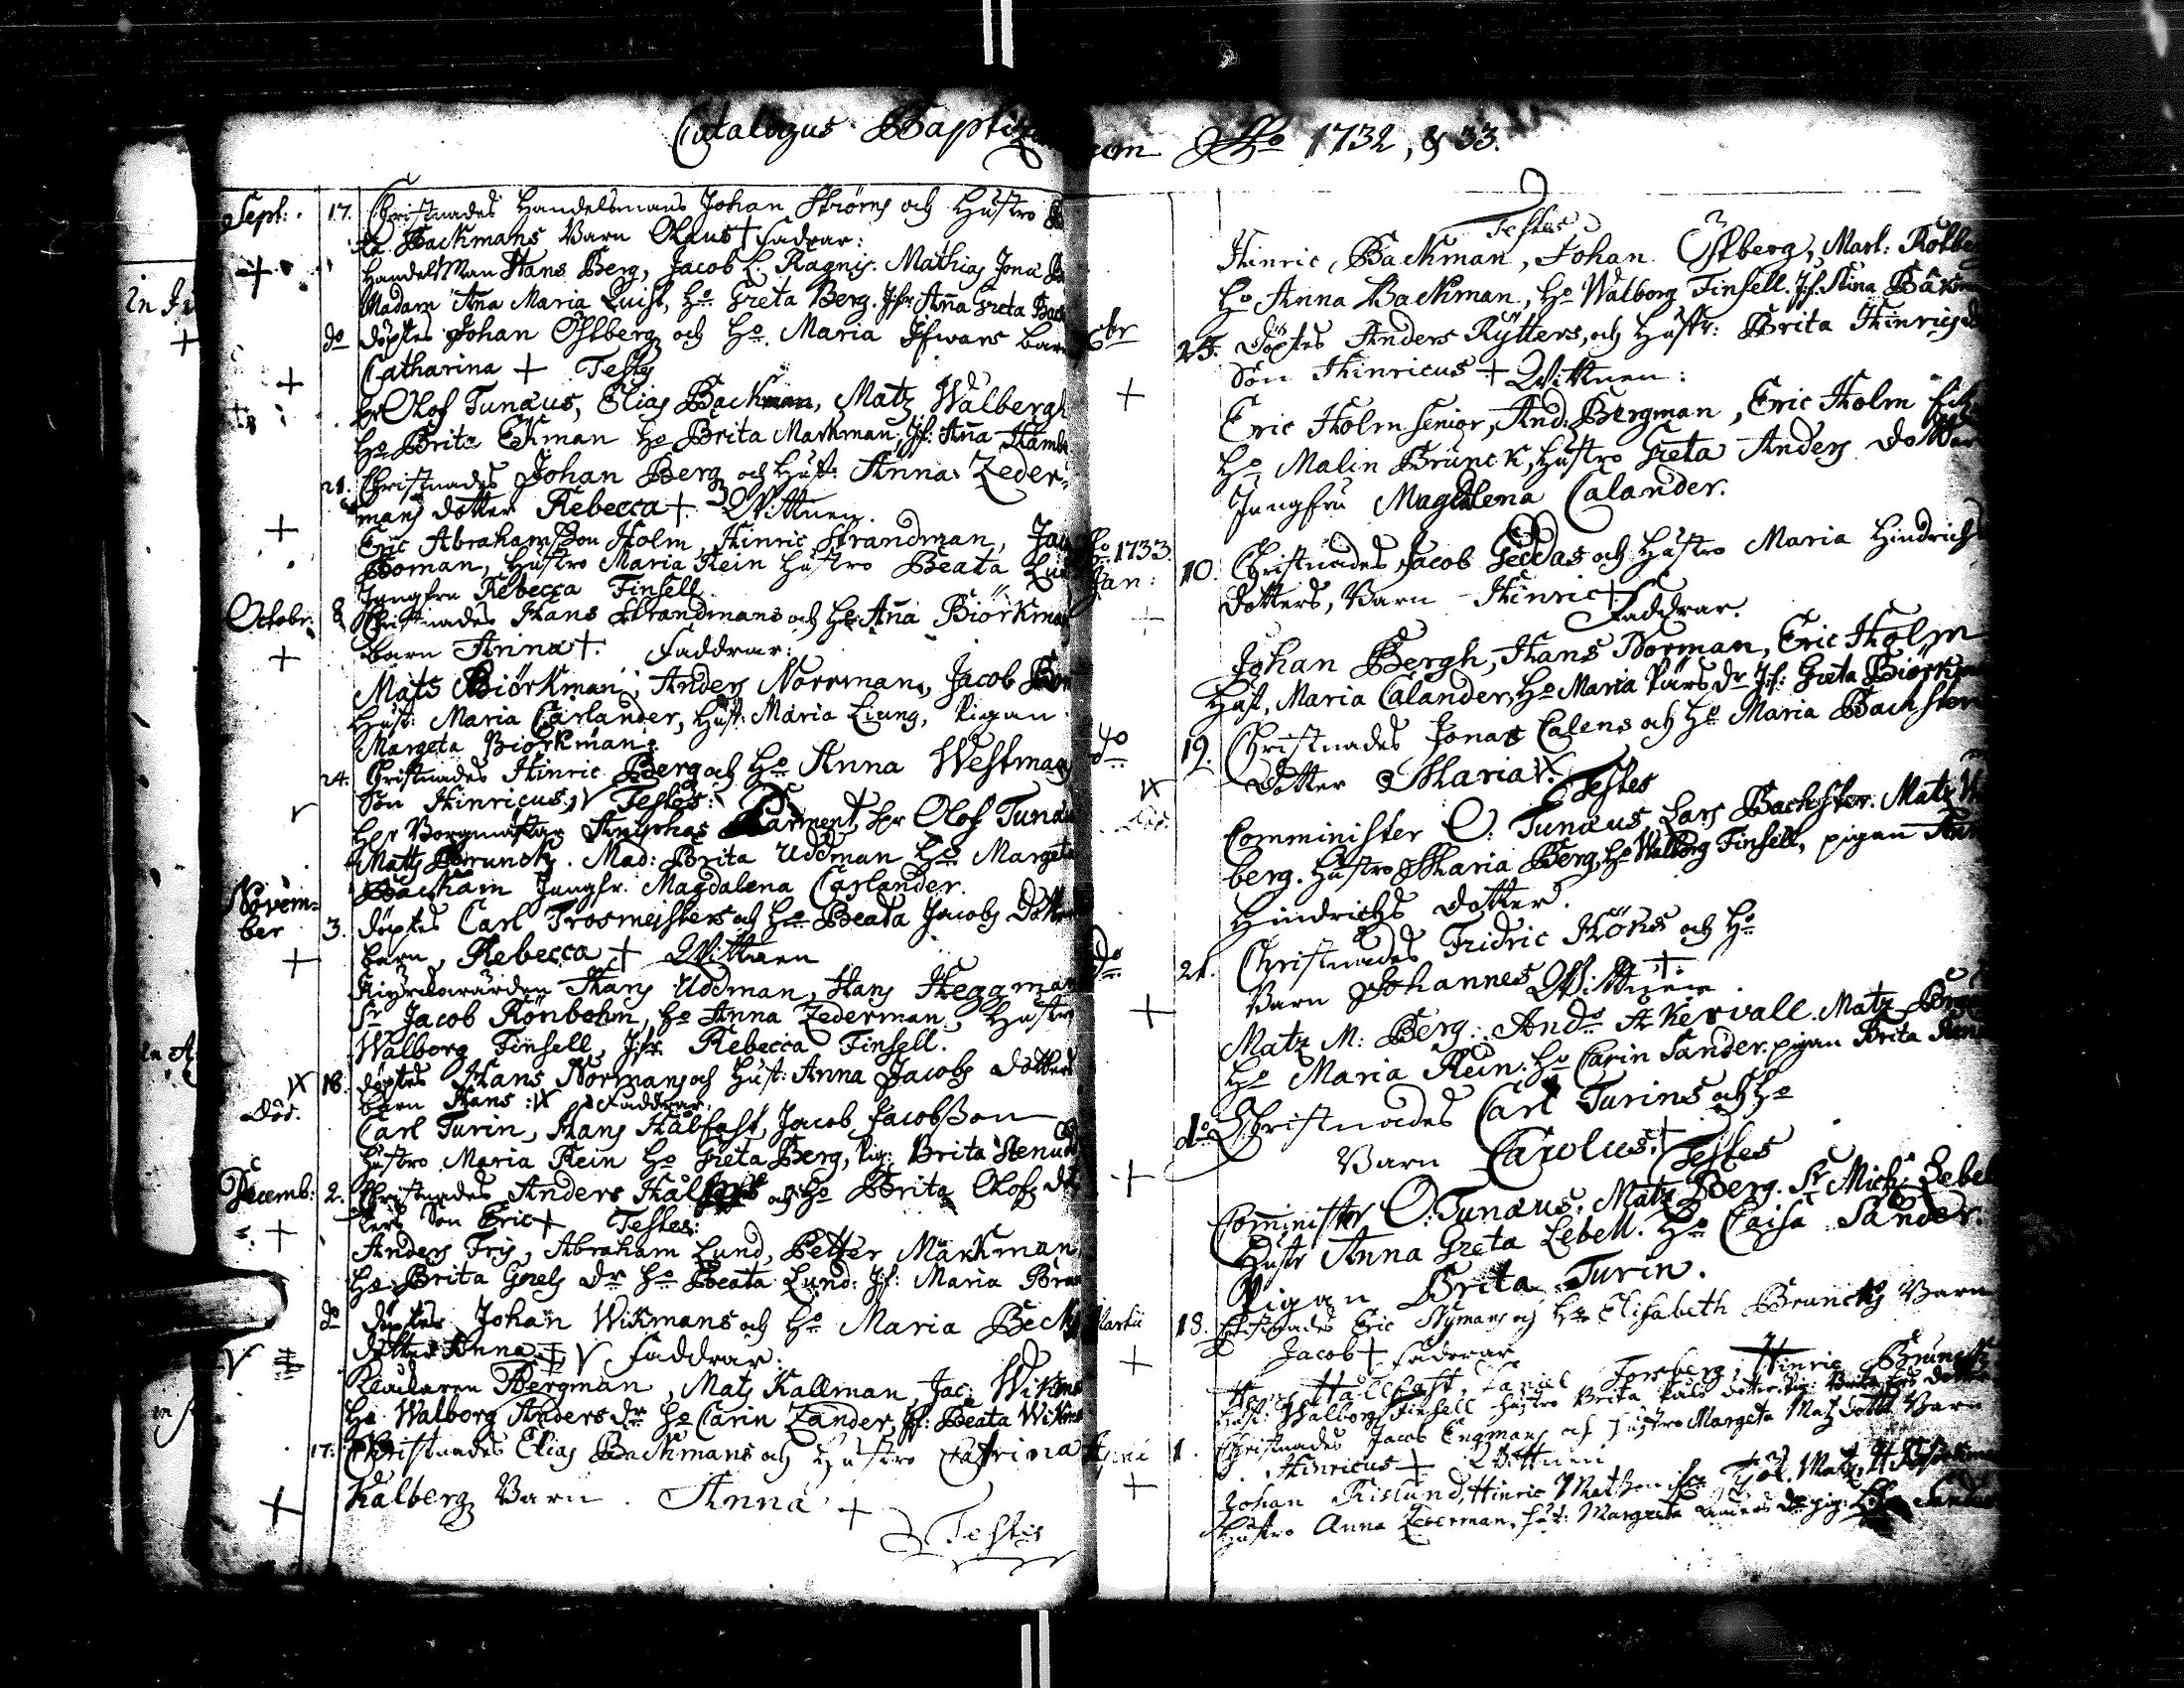 Catalogus Baptiz
Sept: 17. Christnades Handelsmans Johan Ströms och Hustro
Backmans Barn Olaus + Fadrar:
+ HandelsMan Hans Berg, Jacob L. Ragnis. Mathias Jona
Madam Anna Maria Luist, Ho Greta Berg. Jfr Anna Greta Back
do döptes Johan Östberg och Ho. Maria Ifwars barn
+ Catharina + Testes
hr Olof Tunæus, Elias Backman, Matz Walbergh
Ho Brita Ekman Ho Brita Markman. Jf: Anna
21. Christnades Johan Berg och Hust. Anna Zeder-
mans dotter Rebecca +. Wittnen.
+ Eric Abrahamsson Holm, Hinric Strandman, Jac
Boman, Hustro Maria Rein Hustro Beata
Jungfru Rebecca Finsell.
Octobr. 8 Christnades Hans Strandmans och Ho Anna Biörkman
+ barn Anna +. Faddrar:
Mats Biörkman, Anders Norrman, Jacob
Hust: Maria Carlander, Hust: Maria Liung, Pigan
Margeta Biörkman.
24. Christnades Hinric Berg och Ho Anna Westmans
Son Hinricus, V Testes:
V Her Borgmästar Olof Tunæus
Matts Bruncks. Mad: Brita Uddman Ho Margeta
Backman Jungfr. Magdalena Carlander.
Novem-
ber 3. döptes Carl Trosmeisters och Ho Beata Jacobs Dotters
+ barn, Rebecca + Wittnen
Kiyrckowärden Hans Uddman, Hans Heggman
Sr Jacob Rönbohm, Ho Anna Zederman, Hustro
Walborg Finsell, Jfr Rebecca Finsell.
18. döptes Hans Normans och Hust: Anna Jacobs dotters
död. barn Hans : Faddrar.
Carl Turin, Hans Hälfast, Jacob Jacobsson
Hustro Maria Rein Ho Greta Berg, Pig: Brita
Decemb: 2. Christnades Anders och Ho Brita Olofs dot
+ ters Son Eric + Testes:
Anders Fris, Abraham Lund, Petter Markman
Ho Brita Grels Dr Ho Beata Lund: Jf: Maria
do döptes Johan Wikmans och Ho Maria Beck
V dotter Anna V Faddrar:
Klockaren Bergman, Mats Kallman, Jac: Wikman
Ho Walborg Anders dr Ho Carin Zander, Jf: Beata Wikm
17. Christnades Elias Backmans och Hustro Catrina
+ Kalberg Barn. Anna +
Testis
um Ao 1732, & 33.
Testes
Hinric Backman, Johan Östberg, Mart:
Ho Anna Backman, Ho Walborg Finsell. Jf. Stina
Xbr 25. döptes Anders Rytters, och Hustr: Brita Hinrichs
+ Son Hinricus + Wittnen:
Eric Holm Senior, And: Bergman, Eric Holm
Ho Malin Brunck, Hustro Greta Anders dotter
Jungfru Magdalena Calander.
Ao 1733.
Jan: 10. Christnades Jacob Geddas och Hustro Maria Hindrichs
+ dotters, Barn Hinric +
Faddrar.
Johan Bergh, Hans Norman, Eric Holm
Hust, Maria Calander, Ho Maria Pärs dr Jf: Greta Biörkman
do 19. Christnades Jonas Calens och Ho Maria Bachster
död. dotter Maria.
Testes
Comminister O: Tunæus Lars Bachster. Matz
berg. Hustro Maria Berg, Ho Walborg Finsell, pigan
Hindrichs dotter.
do 21. Christnades Fridric Höks och Ho
Barn Johannes +.
Wittnen.
+ Matz M: Berg: Ando Akervall. Matz
Ho Maria Rein. Ho Carin Sander. pigan Brita
do Christnades Carl Turins och Ho
+ Barn Carolus. +
Testes
Comminister O: Tunæus, Matz Berg. Sr Mich: Lebell
Hustr Anna Greta Lebell. Ho Caisa Sander.
Pigan Brita Turin.
Martii 18. Christnades Eric Nymans och Ho Elisabeth Bruncks Barn
+ Jacob + Fadrar
Hans Hällfast, Forsberg, Hinric Brunck
Hust: Walborg Finsell Hustro Brita Påls dotter. Pig: Brita dotter
1. Christnades Jacob Engmans och Hustro Margeta Mats dotters Barn
+ Hinricus + Wittnen
Johan Rislund, Hinric Matsson Matz
Hustro Anna Zederman, Hust: Margreta Anders dr pig: